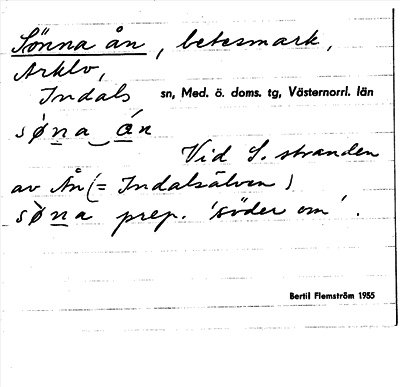 Sönna ån, betesmark,
Arklo,
Indals sn, Med. ö. doms. tg, Västernorrl. län
sø̀na á̱n
Vid S. stranden
av Ån (= Indalsälven)
sø̀na prep. 'söder om'.
Bertil Flemström 1955